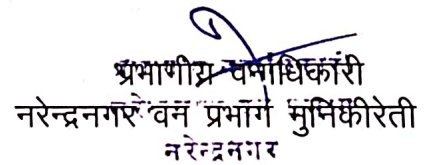 प्रभागीय वनाधिकारी
नरेन्द्रनगर वन प्रभाग मुनिकीरेती
नरेन्द्रनगर